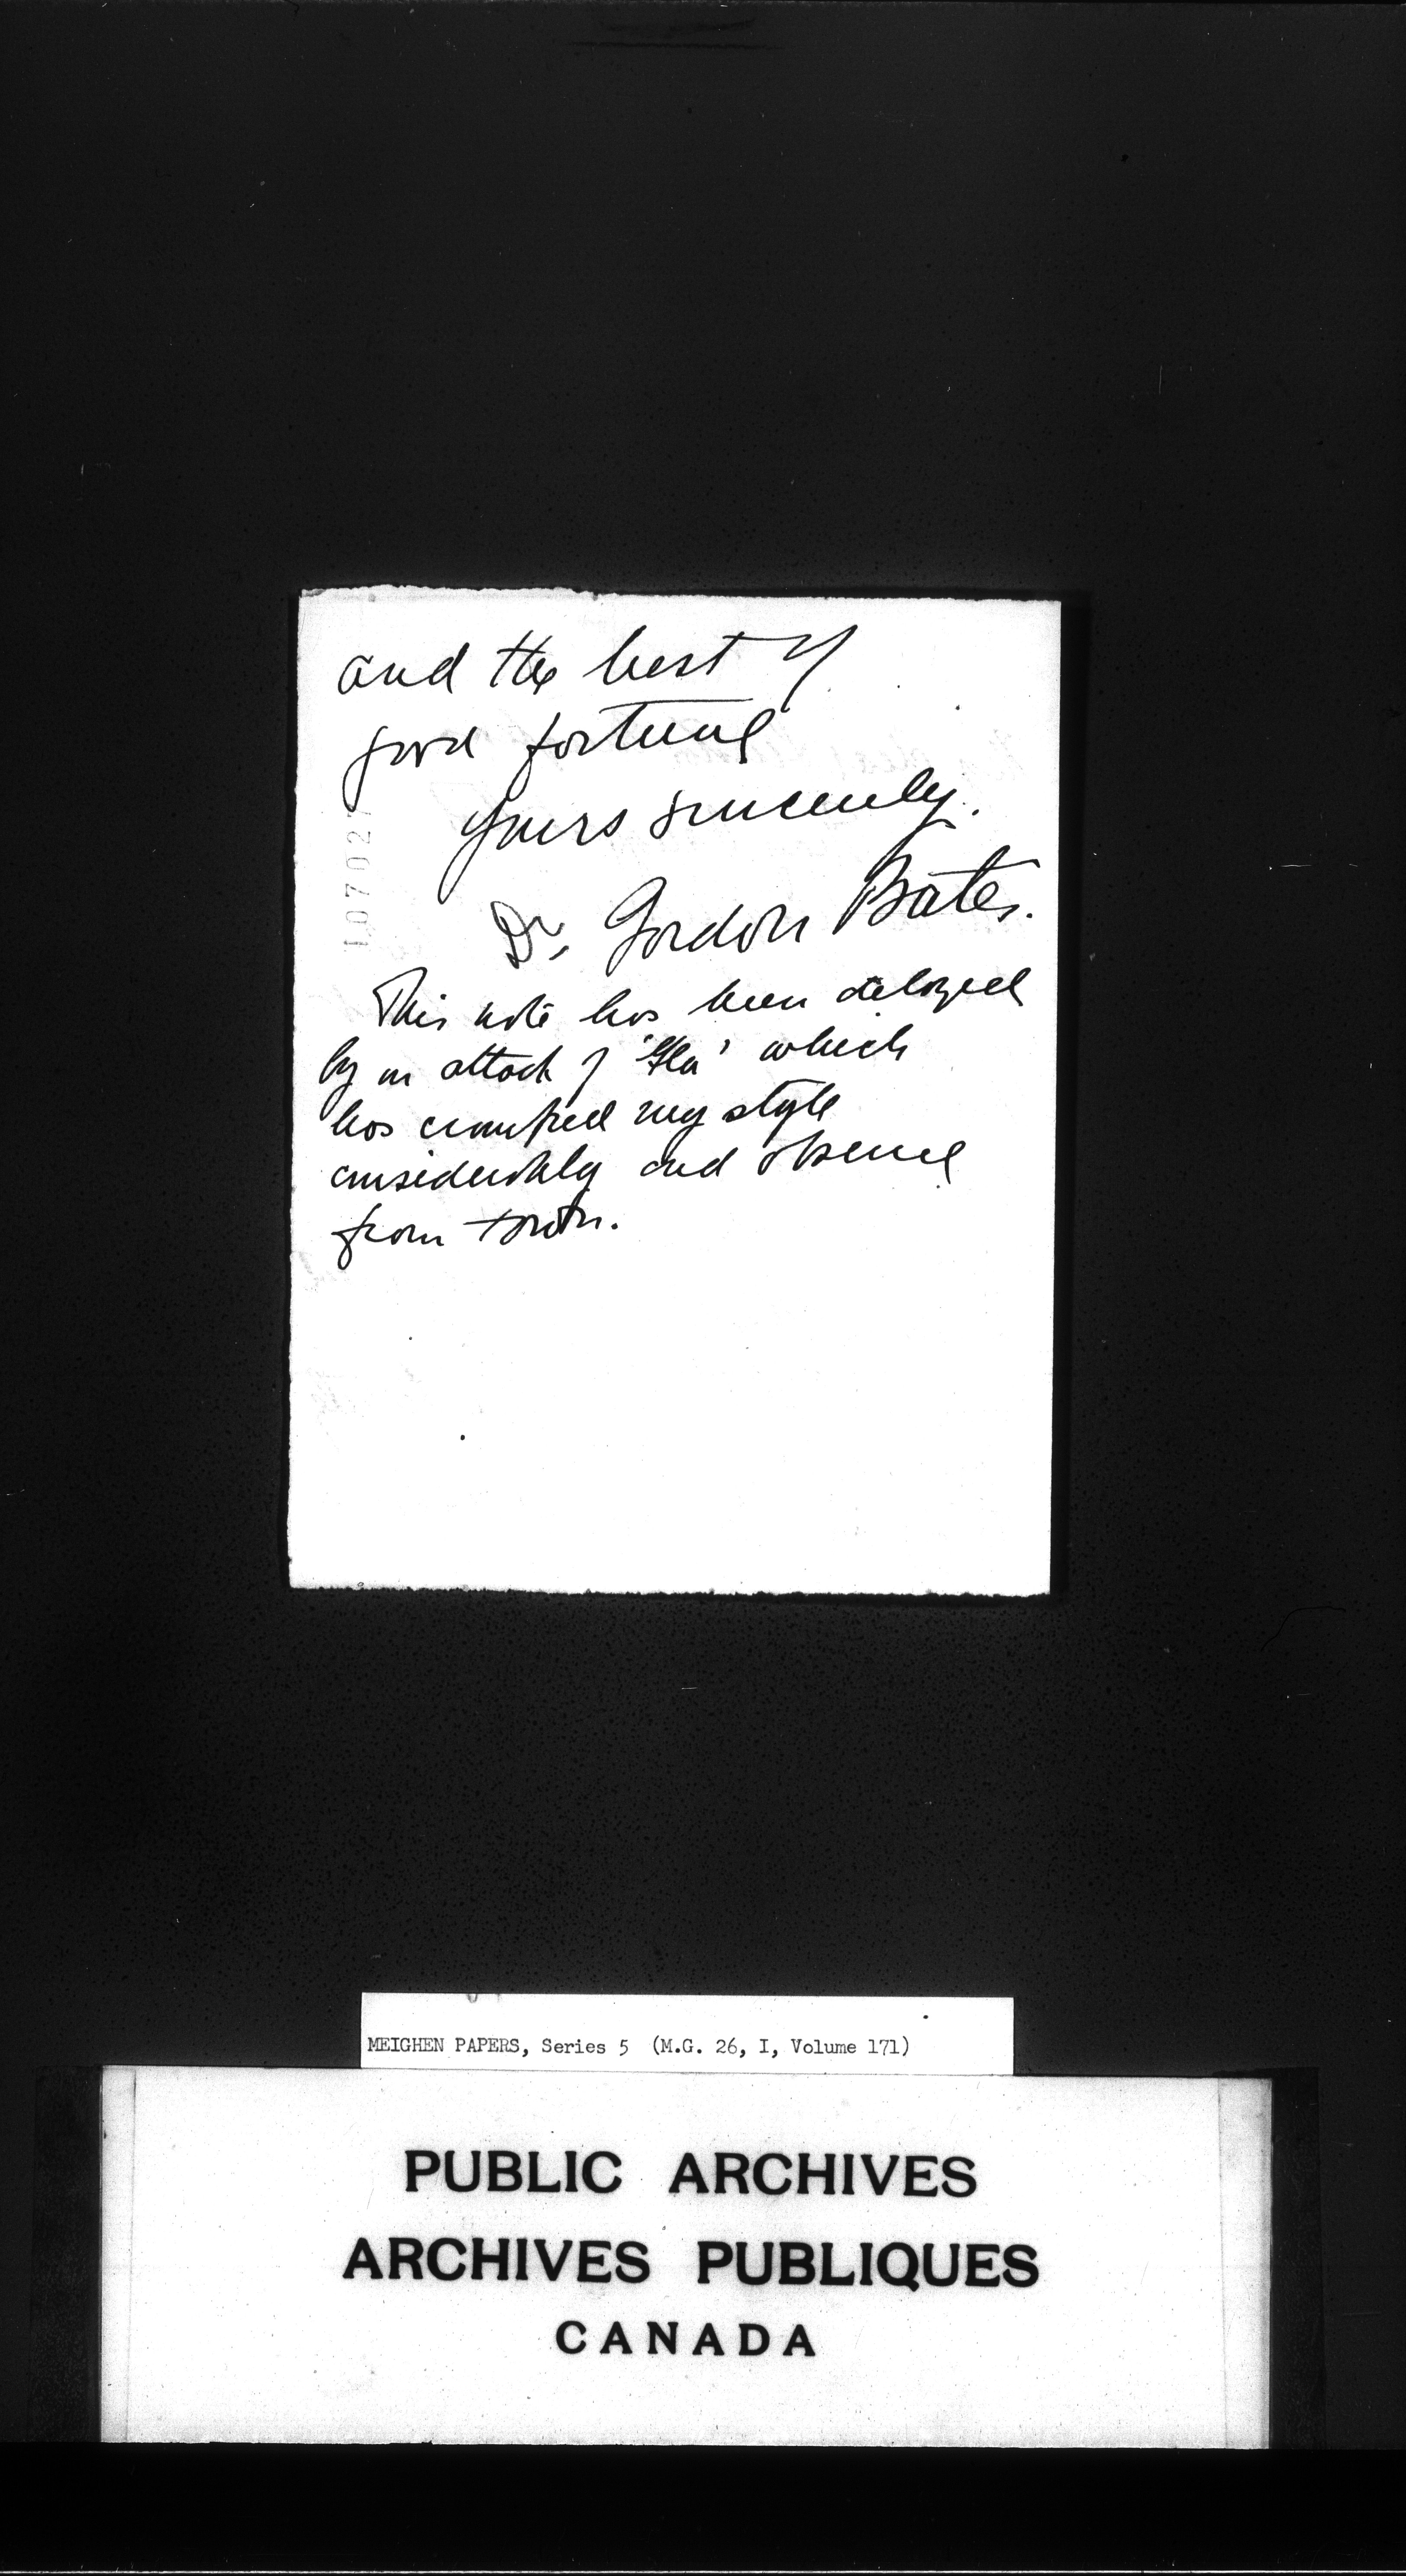 and the best of
good fortune
Yours sincerely.
Dr. Gordon Bates.
This note has been delayed
by an attack of 'Flu' which
has cramped my style
considerably and absence
from town.
107027
MEIGHEN PAPERS, Series 5 (M.G. 26, I, Volume 171)
PUBLIC ARCHIVES
ARCHIVES PUBLIQUES
CANADA